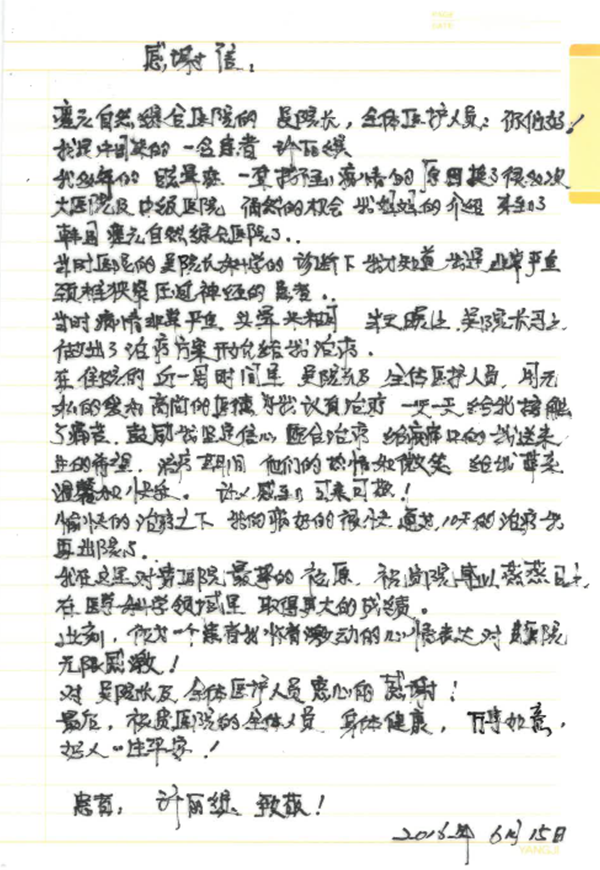 感谢信:
自然综合医院的 吴院长, 全体医护人员: 你们好!
我是中国来的一名患者 许丽
我多年的 一直 病情的原因换了很多次
大医院及中级医院 偶然的机会 我妈妈的介绍 来到了
韩国 自然综合医院了..
当时医院的吴院长科学的 诊断下 我才知道 我是非常严重
颈椎狭窄压迫神经的患者..
当时病情非常严重. 吴院长马上
做出了治疗方案开始给我治疗.
在住院的 近一周时间里 吴院长及 全体医护人员, 用无
私的爱和高尚的医德 为我认真治疗 一天一天 给我接触
了痛苦. 鼓励我坚定信心 配合治疗 给病床上的我送来
生的希望. 治疗期间 他们的热情和微笑 给我带来
温馨和快乐. 让人感到可亲可敬!
愉快的治疗之下 我的病好的很快 通过, 10天的治疗我
再出院了.
我在这里对贵医院 最 的 祝贵院 蒸蒸日上,
在医学科学领域里 取得更大的成绩.
此刻, 作为一个患者我怀着激动的心情表达对贵医院
无限感激!
对 吴院长及 全体医护人员 衷心的 感谢!
最后, 祝贵医院的全体人员 身体健康, 万事如意,
好人一生平安!
患者: 许丽 致敬!
2016年 6月15日
YANGJI